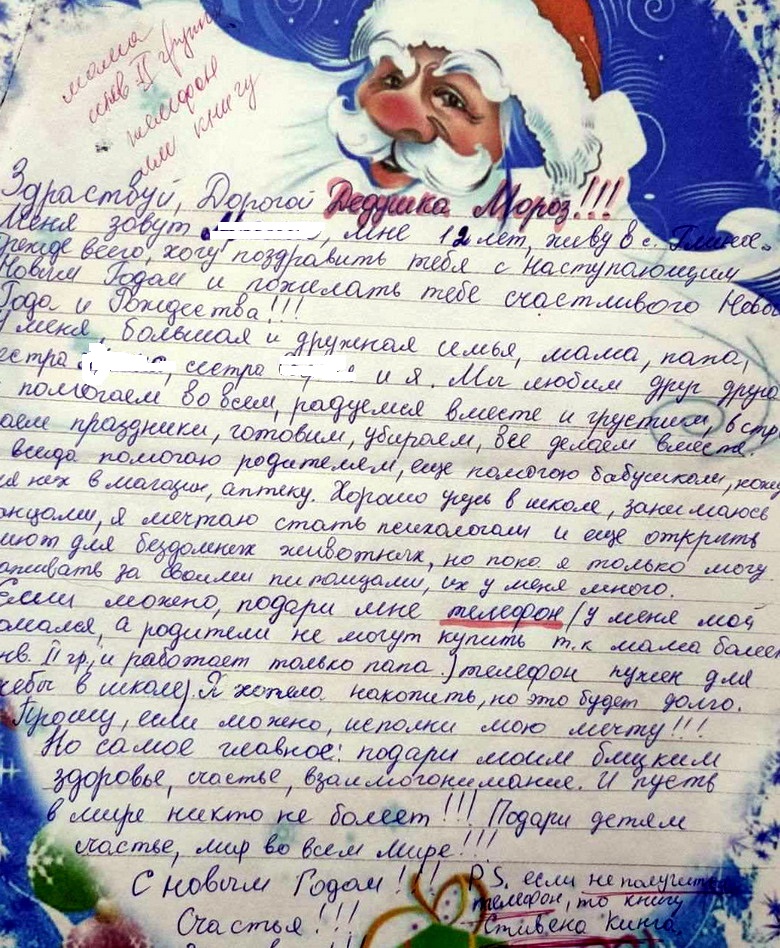 мама
инв II группы
телефон
или книгу
Здраствуй, Дорогой Дедушка Мороз!!!
Меня зовут , мне 12 лет, живу в с.
Прежде всего, хочу поздравить тебя с наступающим
Новым Годам и пожелать тебе счастливогоНово
Года и Рождества!!!
У меня, большая и дружная семья, мама, папа,
естра , сестра и я. Мы любим друг друга
помогаем во всем, радуемся вместе и грустим, встр
аем праздники, готовим, убираем, все делаем вместе.
всегда помогаю родителям, еще помогаю бабушкам, хожу
для них в магазин, аптеку. Хорошо учусь в школе, занимаюсь
анцами, я мечтаю стать психологам и еще открыть
иют для бездомных животных, но пока я только могу
аживать за своими питомцами, их у меня много.
Если можно, подари мне телефон (у меня мой
омался, а родители не могут купить т.к мама болеет
нв. II гр., и работает только папа.) телефон нужен для
чебы в школе). Я хотела накопить, но это будет долго.
Прошу, если можно, исполни мою мечту!!!
Но самое главное: подари моим близким
здоровье, счастье, взаимопонимание. И пусть
в мире никто не болеет!!! Подари детям
счастье, мир во всем мире!!!
С новым Годом!!!
Счастья!!!
P.S. если не получится
телефон, то книгу
Стивена Кинга.